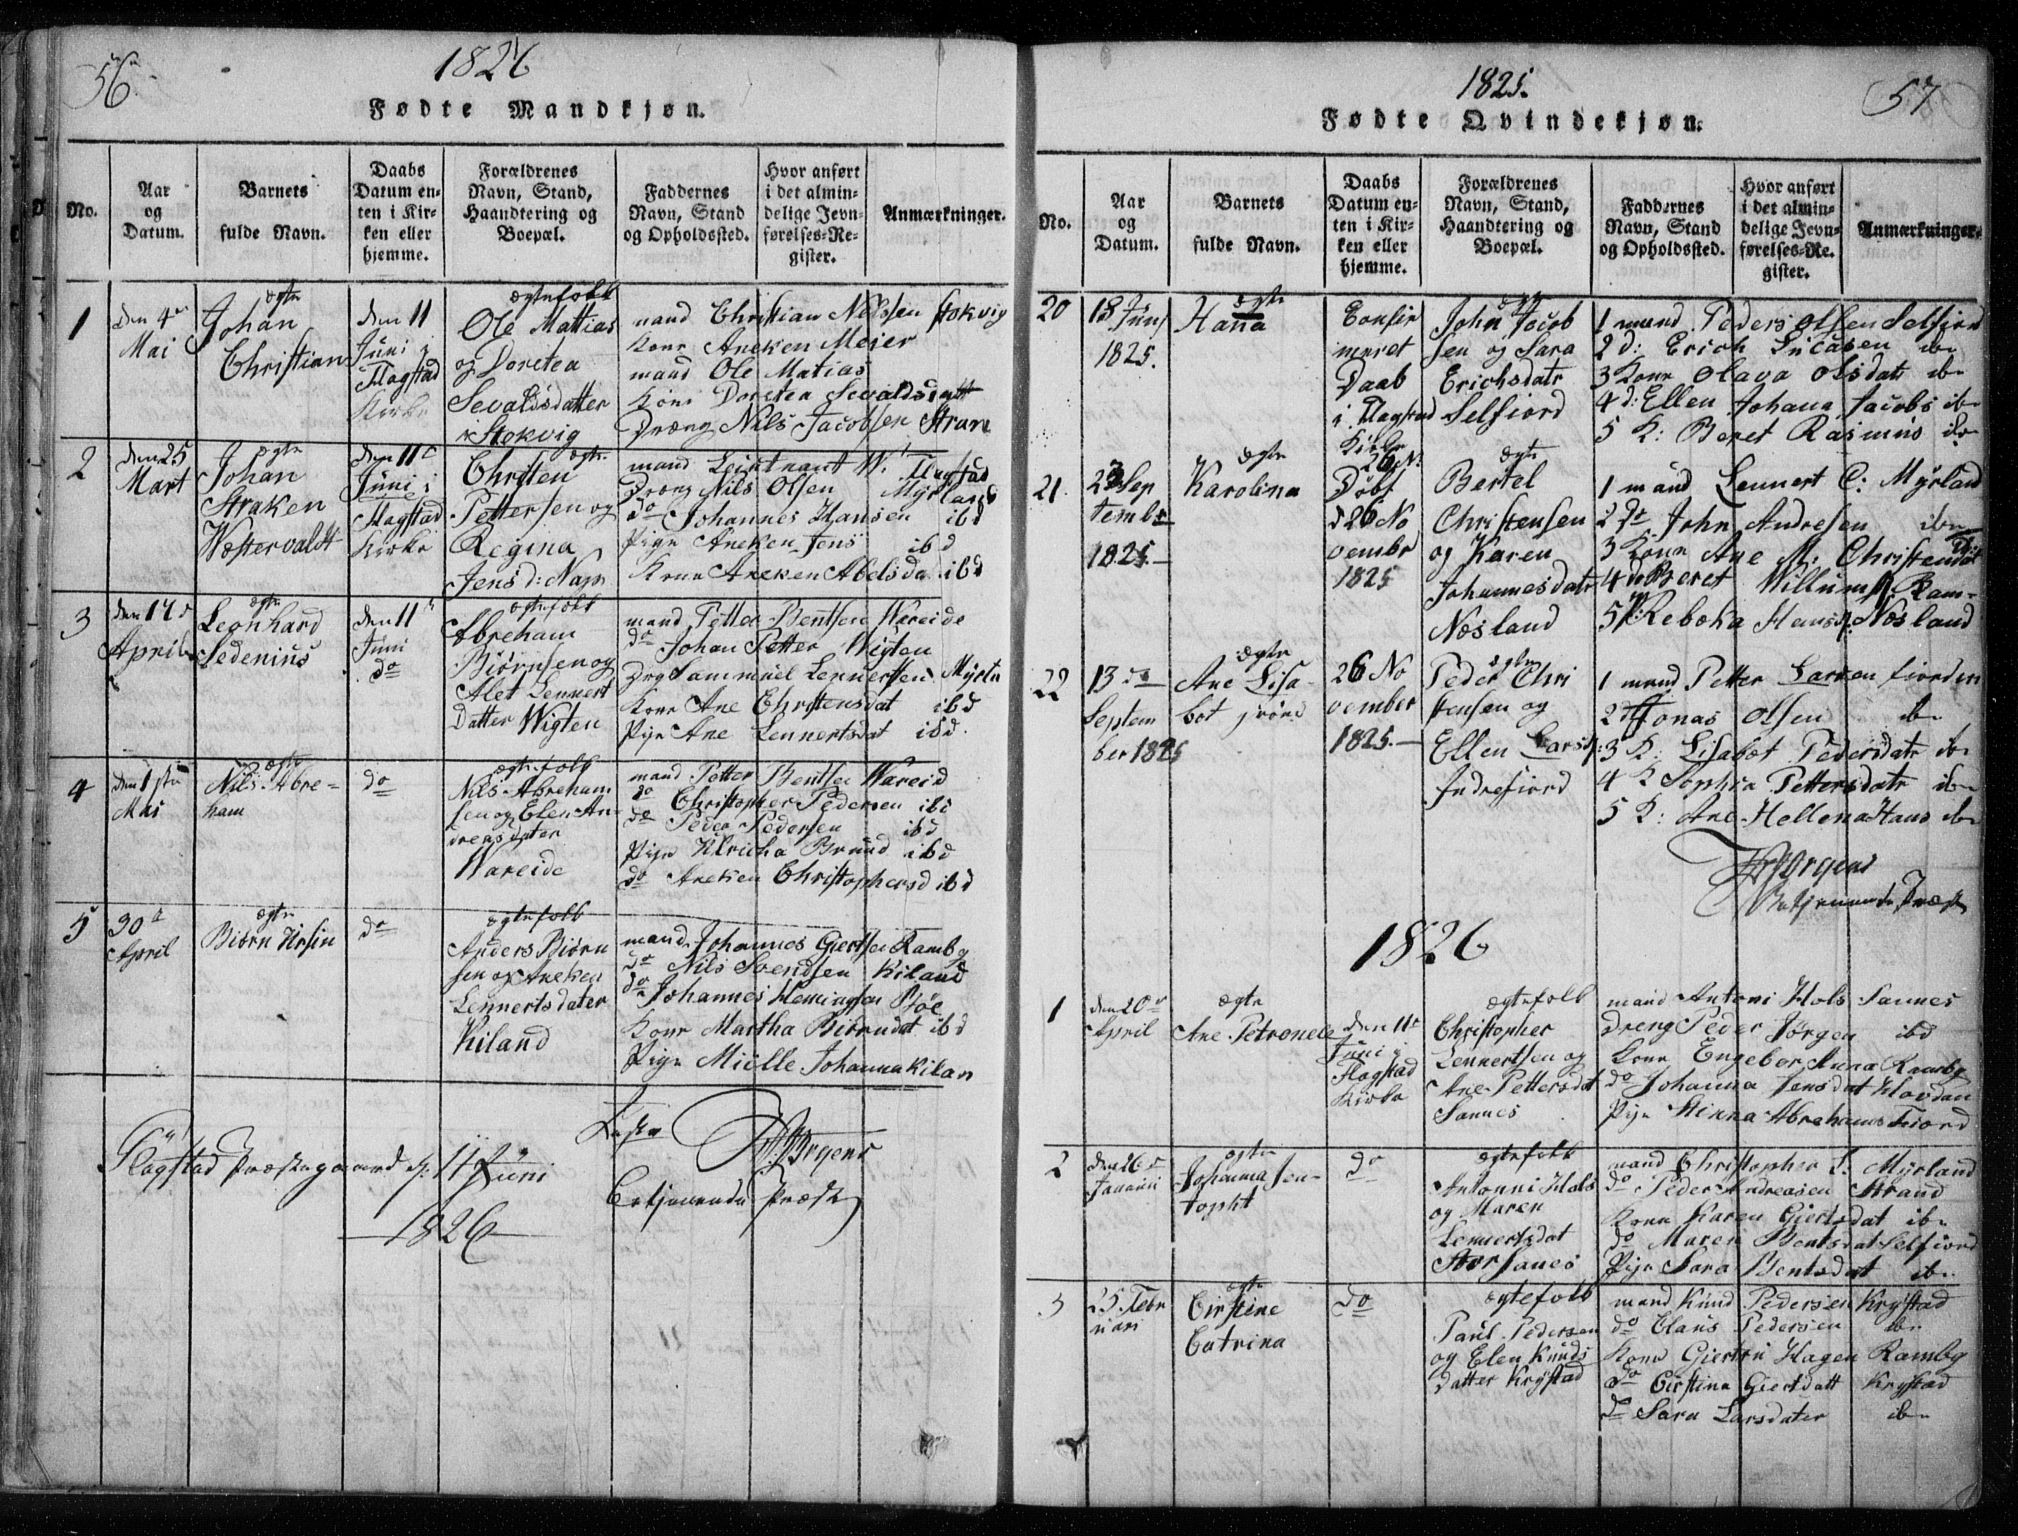 56
1826
Fødte Mandkjøn.
No.
Aar
og
Datum.
Barnets
fulde Navn.
Daabs
Datum en-
ten i Kir-
ken eller
hjemme.
Forældrenes
Navn, Stand,
Haandtering og
Boepæl.
Faddernes
Navn, Stand
og Opholdssted.
Hvor anført
i det almin-
delige Jevn-
førelses-Re-
gister.
Anmærkninger.
1
den 4de
Mai
ægte
Johan
Christian
den 11
Juni i
Flagstad
Kirke
ægtefolk
Ole Mattias
og Doretea
Sevaldsdatter
i Stokvig
mand Christian Nilssen Stokvig
Kone Aneken Meier
mand Ole Matias
Kone Doretea Sevaldsdatt
Dreng Nils Jacobsen Stran
2
den 25
Mart
ægte
Johan
Straken
Westervaldt
den 11te
Juni i
Flagstad
Kirke
ægte
Christen
Pettersen og
Regina
Jensd: Nap
mand Leutnant W. Flagstad
Dreng Nils Olsen Myrland
do Johannes Hansen ibd
Pige Aneken Jens ibd
Kone Aneken Abelsda ibd
3
den 17de
April
ægte
Leonhard
Sedenius
den 11te
Juni
do
ægtefolk
Abreham
Biørnsen og
Alet Lennert
Datter Wigten
mand Petter Bentsen Wareide
do Johan Petter Wigten
Drg Sammuel Lennertsen Myrln
Kone Ane Christensdat ibd
Pige Ane Lennertsdat ibd.
4
den 1ste
Mai
ægte
Nils Abre-
ham
do
ægtefolk
Nils Abreham
sen og Elen An-
drensdater
Wareide
mand Petter Bentsen Wareid
do Christopher Pedersen ibd
do Peder Pedersen ibd
Pige Ulricha Bruud ibd
do Aneken Christophersd ibd
5
30te
April
ægte
Biørn Ursin
do
ægtefolk
Anders Biørn
sen og Aneken
Lennertsdater
Kiland
mand Johannes Giertsen Rambg
do Nils Svendsen Kiland
do Johannes Hemingsen Bøe
Kone Martha Biørnsdat ibd
Pige Mielle Johanna Kilan
Flagstad Præstegaard d: 11 Juni
1826
Betjenende Præst
57
1825.
Fødte Qvindekjøn.
No.
Aar
og
Datum.
Barnets
fulde Navn.
Daabs
Datum en-
ten i Kir-
ken eller
hjemme.
Forældrenes
Navn, Stand,
Haandtering og
Boepæl.
Faddernes
Navn, Stand
og Opholdssted.
Hvor anført
i det almin-
delige Jevn-
førelses-Re-
gister.
Anmærkninger.
20
18 Juni
1825.
ægte
Hana
Confir
meret
Daab
i Flagstad
Kirke
26 N:
ægte
John Jacob
sen og Sara
Erichsdatr
Selfiord
1 mand Peder Olsen Selfiord
2 d: Erich Lucasen ibn
3 Kone Olava Olsdatr ibn
4 d: Ellen Johana Jacobs ibn
5 K: Beret Rasmus ibn
21
23 Sep
tembr
1825
ægte
Karolina
Døbt
d 26 No
vembr
1825
ægte
Bartel
Christensen
og Karen
Johannesdatr
Næsland
1 mand Lennert C: Myrland
2 do John Andresen ibn
3 Kone Ane M: Christensd
4 do Beret Willums Ram-
5 P: Rebeka Hansd: Næsland
22
13 de
Septem
ber 1825
ægte
Ane Lisa
bet
26 No
vember
1825.
ægte
Peder Chri
stensen og
Ellen Larsd:
Indrefiord
1 mand Petter Larsen fiorden
2 d Jonas Olsen ibn
3 K: Lisabet Pedersdatr ibn
4 K Sophia Pettersdatr ibn
5 K: Ane Hellena Hans ibn
Betjenende Præst
1826
1
den 20de
April
ægte
Ane Petronele
den 11te
Juni i
Flagstad
Kirke
ægtefolk
Christopher
Lennertsen og
Ane Pettersdat
Sannes
mand Antoni Hols Sannes
Dreng Peder Jørgen ibd
Kone Engeber Anna Rambg
do Johanna Jensdat Hovdan
Pige Stinna Abrehams Fiord
2
den 26de
Januari
ægte
Johanna Jen-
topht
do
ægtefolk
Antonni Hols
og Maren
Lennertsdat
Stor Sanes
mand Christopher L. Myrland
do Peder Andreasen Strand
Kone Karen Giertsdat ibn
do Maren Bentsdat Selfiord
Pige Sara Bentsdat ibn
3
25 Febr
uari
ægte
Cirstine
Catrina
do
ægtefolk
Paul Pedersen
og Elen Knuds
datter Krystad
mand Knud Pedersen Krystad
do Claus Pedersen ibn
Kone Giertru Hagen Rambg
do Cirstina Giertdatt Krystad
do Sara Larsdater ibn